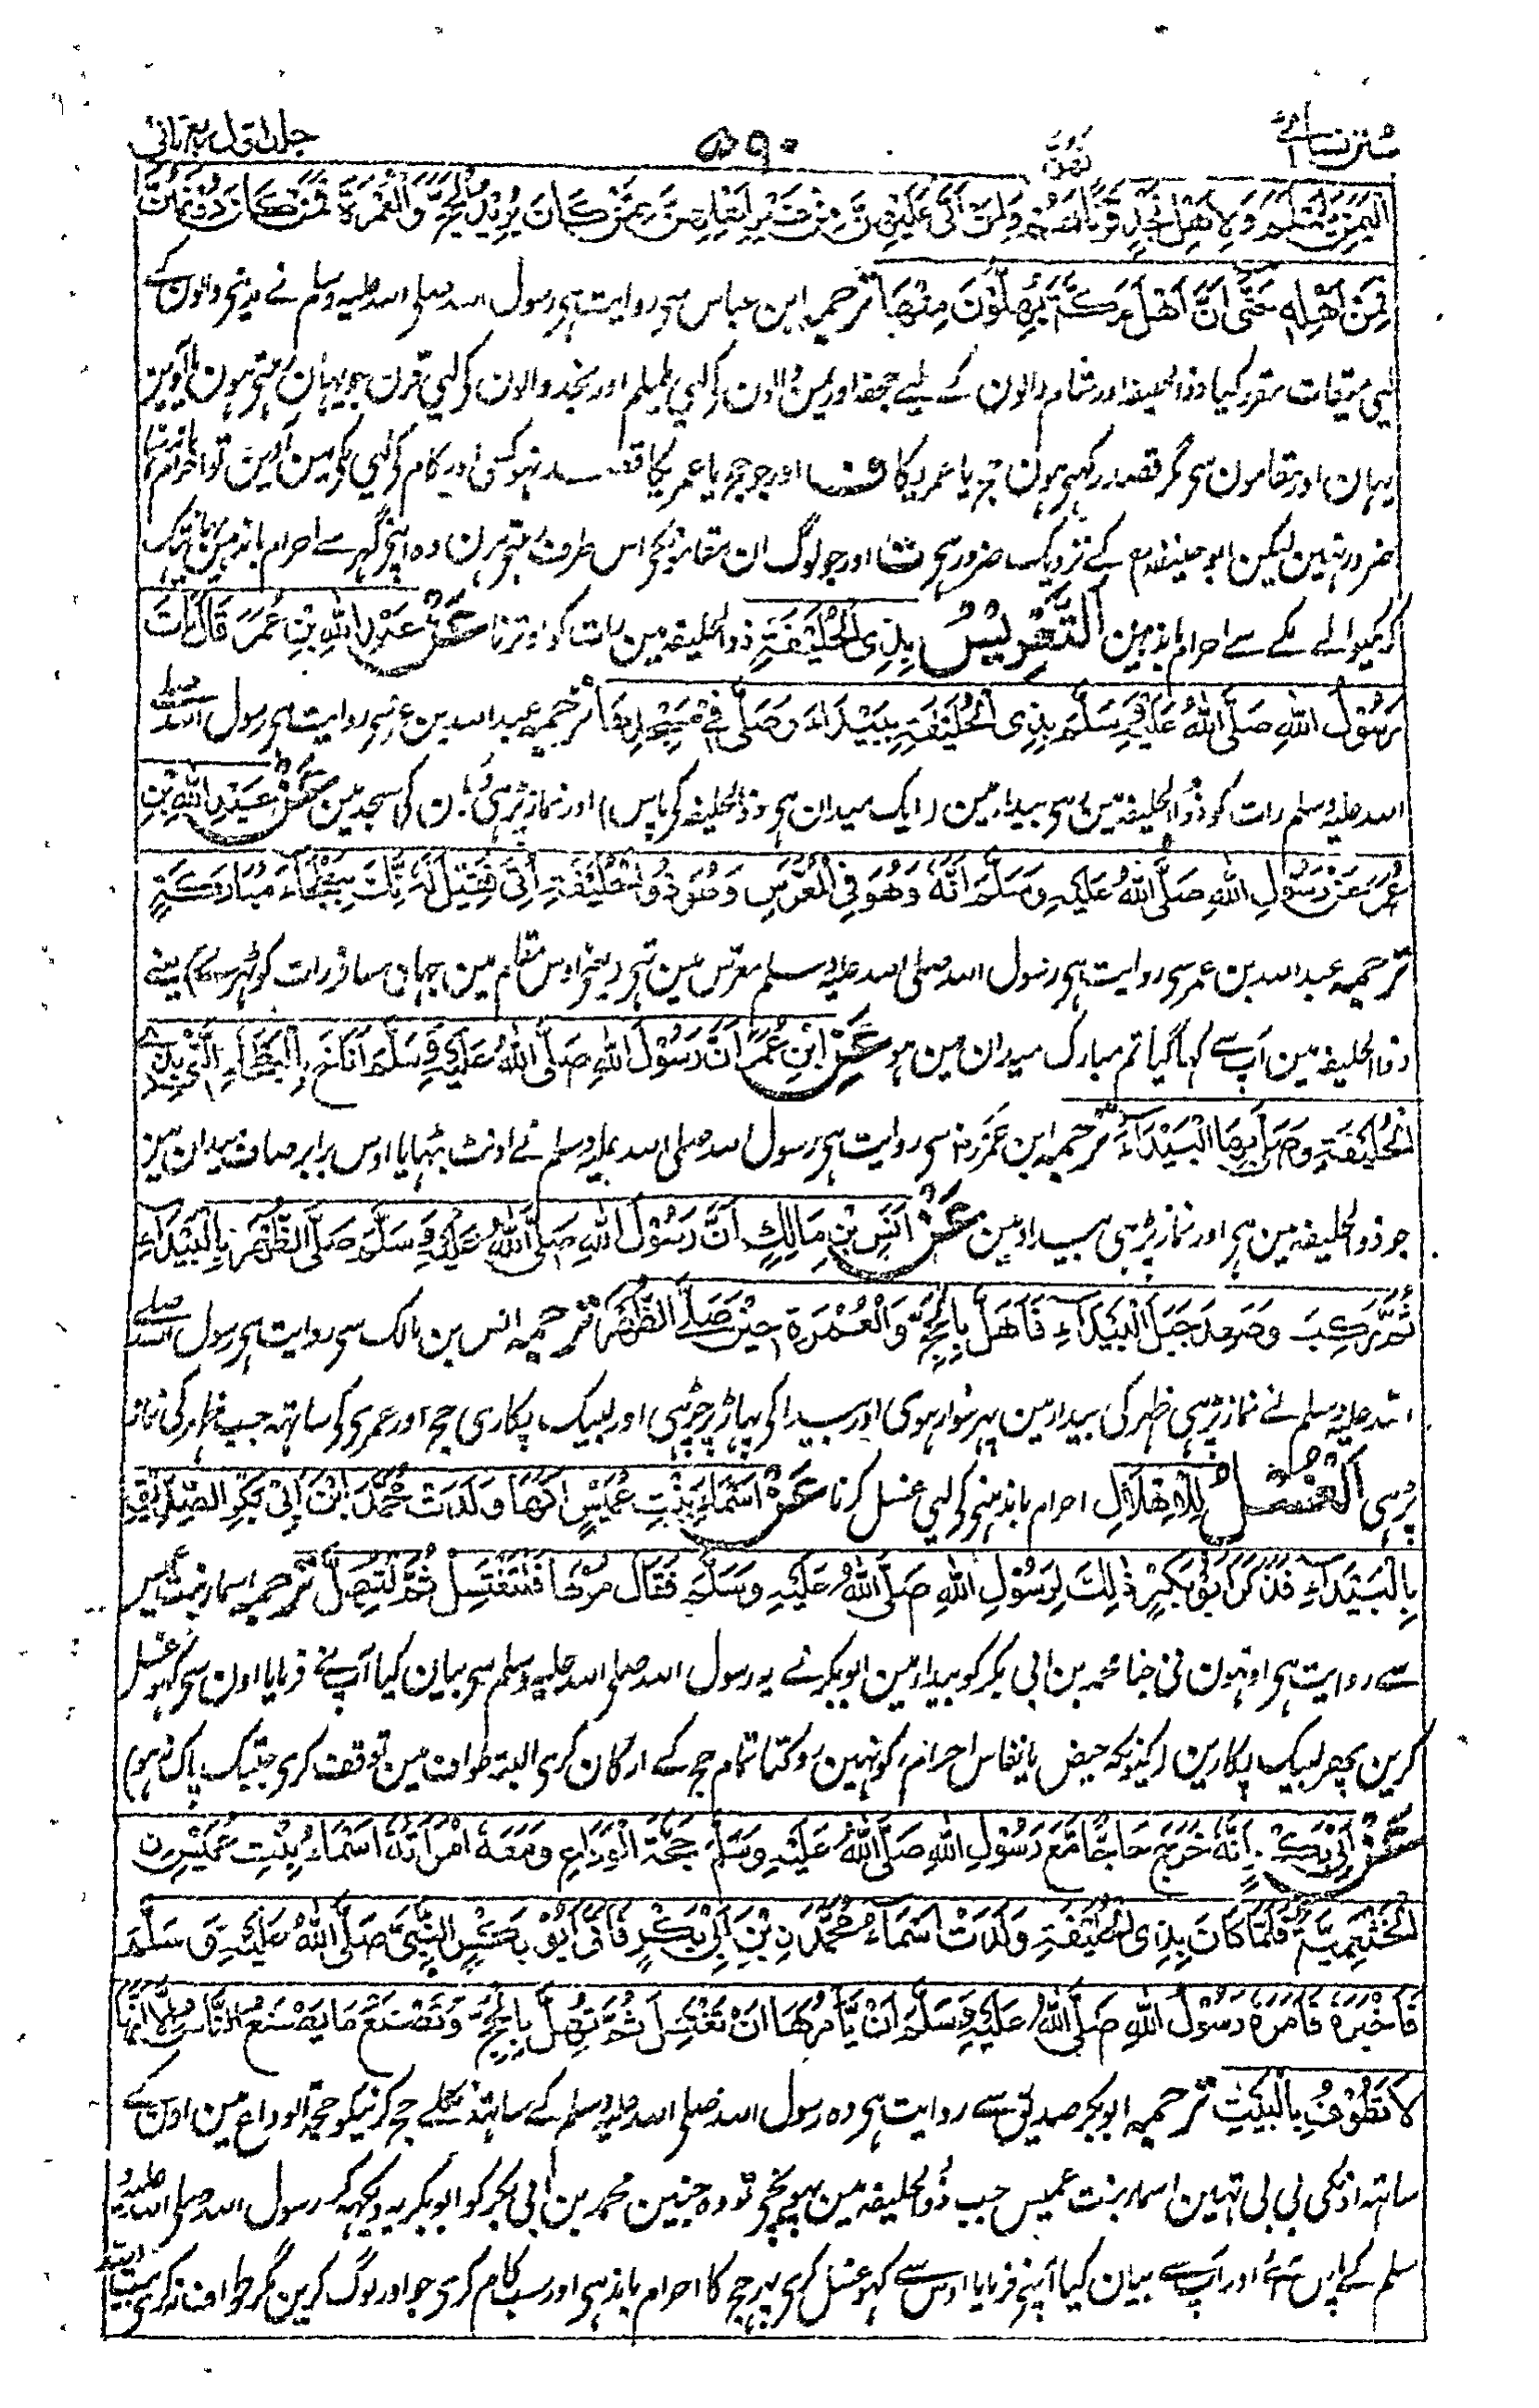 سنن نسائی ۵۹۰ جلد اول ربع ثانی
الیمن یلملم ولاهل نجد قرنا لهن ولمن اتی علیهن من غیر اهلهن ممن کان یرید الحج والعمرة فمن کان دونهن
فمن اهله حتی ان اهل مکة یهلون منها ترجمہ ابن عباس سی روایت ہی رسول اللہ صلی اللہ علیہ وسلم نے مدینی والون کے
لیی میقات مقرر کیا ذوالحلیفہ اور شام والون کے لیے جحفہ اور یمن والون کی لیی یلملم اور نجد والون کی لیی قرن جو یہان رہتی ہون یا آوین
یہان اور مقامون سی مگر قصد رکہتی ہون حج یا عمریکا ف اور جو حج یا عمریکا قصد نہو کسی اور کام کی لیی مکی مین آوین تو احرام باندہنا
ضرور نہین لیکن ابو حنیفہ کے نزدیک ضرور ہی ت اور جو لوگ ان مقامونکی اس طرف رہتی ہون وہ اپنی گہر سے احرام باندہین یہانتک
کہ مکیوالے مکے سے احرام باندہین التعریس بذی الحلیفة ذوالحلیفہ مین رات کو اوترنا عن عبد الله بن عمر قال بات
رسول الله صلی الله علیه وسلم بذی الحلیفة ببیداء وصلی فی مسجدها ترجمہ عبد اللہ بن عمر سی روایت ہی رسول اللہ صلی
اللہ علیہ وسلم رات کو ذوالحلیفہ مین رہی بیداء مین (ایک میدان ہی ذوالحلیفہ کی پاس) اور نماز پڑہی وہان کی مسجد مین عن عبد الله بن
عمر عن رسول الله صلی الله علیه وسلم انه وهو فی المعرس وهو ذوالحلیفة اتی فقیل له انک ببطحاء مبارکة
ترجمہ عبد اللہ بن عمر سی روایت ہی رسول اللہ صلی اللہ علیہ وسلم معرس مین تہی (یعنی اوس مقام مین جہان مسافر رات کو ٹہرے) یعنے
ذوالحلیفہ مین آپ سے کہا گیا تم مبارک میدان مین ہو عن ابن عمر ان رسول الله صلی الله علیه وسلم اناخ بالبطحاء التی بذی
الحلیفة وصلی بها البیداء ترجمہ ابن عمر رضہ سی روایت ہی رسول اللہ صلی اللہ علیہ وسلم نے اونٹ بٹہایا اوس برابر صاف میدان مین
جو ذوالحلیفہ مین ہی اور نماز پڑہی بیداء مین عن انس بن مالک ان رسول الله صلی الله علیه وسلم صلی الظهر بالبیداء
ثم رکب وصعد جبل البیداء فاهل بالحج والعمرة حین صلی الظهر ترجمہ انس بن مالک سی روایت ہی رسول اللہ صلی
اللہ علیہ وسلم نے نماز پڑہی ظہر کی بیداء مین پہر سوار ہوی اور بیدا کی پہاڑ پر چڑہی اور لبیک پکاری حج اور عمری کی ساتہہ جب ظہر کی نماز
پڑہی الغسل للاهلال احرام باندہنی کی لیی غسل کرنا عن اسماء بنت عمیس انها ولدت محمد ابن ابی بکر الصدیق
بالبیداء فذکر ابو بکر ذلک لرسول الله صلی الله علیه وسلم فقال مرها فلتغتسل ثم لتهل ترجمہ اسماء بنت عمیس
سے روایت ہی اونہون نی جنا محمد بن ابی بکر کو بیداء مین ابوبکر نے یہ رسول اللہ صلی اللہ علیہ وسلم سی بیان کیا آپ نے فرمایا اون سی کہو غسل
کرین پہر لبیک پکارین (کیونکہ حیض یا نفاس احرام کو نہین روکتا تمام حج کے ارکان کری البتہ طواف مین توقف کری جبتک پاک نہو)
عن ابی بکر انه خرج حاجا مع رسول الله صلی الله علیه وسلم حجة الوداع ومعه امرأته اسماء بنت عمیس ن
الخثعمیة فلما کان بذی الحلیفة ولدت اسماء محمد ن بن ابی بکر فاتی ابو بکر النبی صلی الله علیه وسلم
فاخبره فامره رسول الله صلی الله علیه وسلم ان یأمرها ان تغتسل ثم تهل بالحج وتصنع ما یصنع الناس الا انها
لا تطوف بالبیت ترجمہ ابوبکر صدیق سے روایت ہی وہ رسول اللہ صلی اللہ علیہ وسلم کے ساتہہ نکلے حج کرنیکو حجة الوداع مین اون کے
ساتہہ اونکی بی بی تہین اسماء بنت عمیس جب ذوالحلیفہ مین پہونچی تو وہ جنین محمد بن ابی بکر کو ابوبکر یہ دیکہہ کر رسول اللہ صلی اللہ علیہ و
سلم کے پاس آئے اور آپ سے بیان کیا آپنے فرمایا اوس سے کہو غسل کری پہر حج کا احرام باندہی اور سب کام کری جو اور لوگ کرین مگر طواف نہ کری بیت اللہ